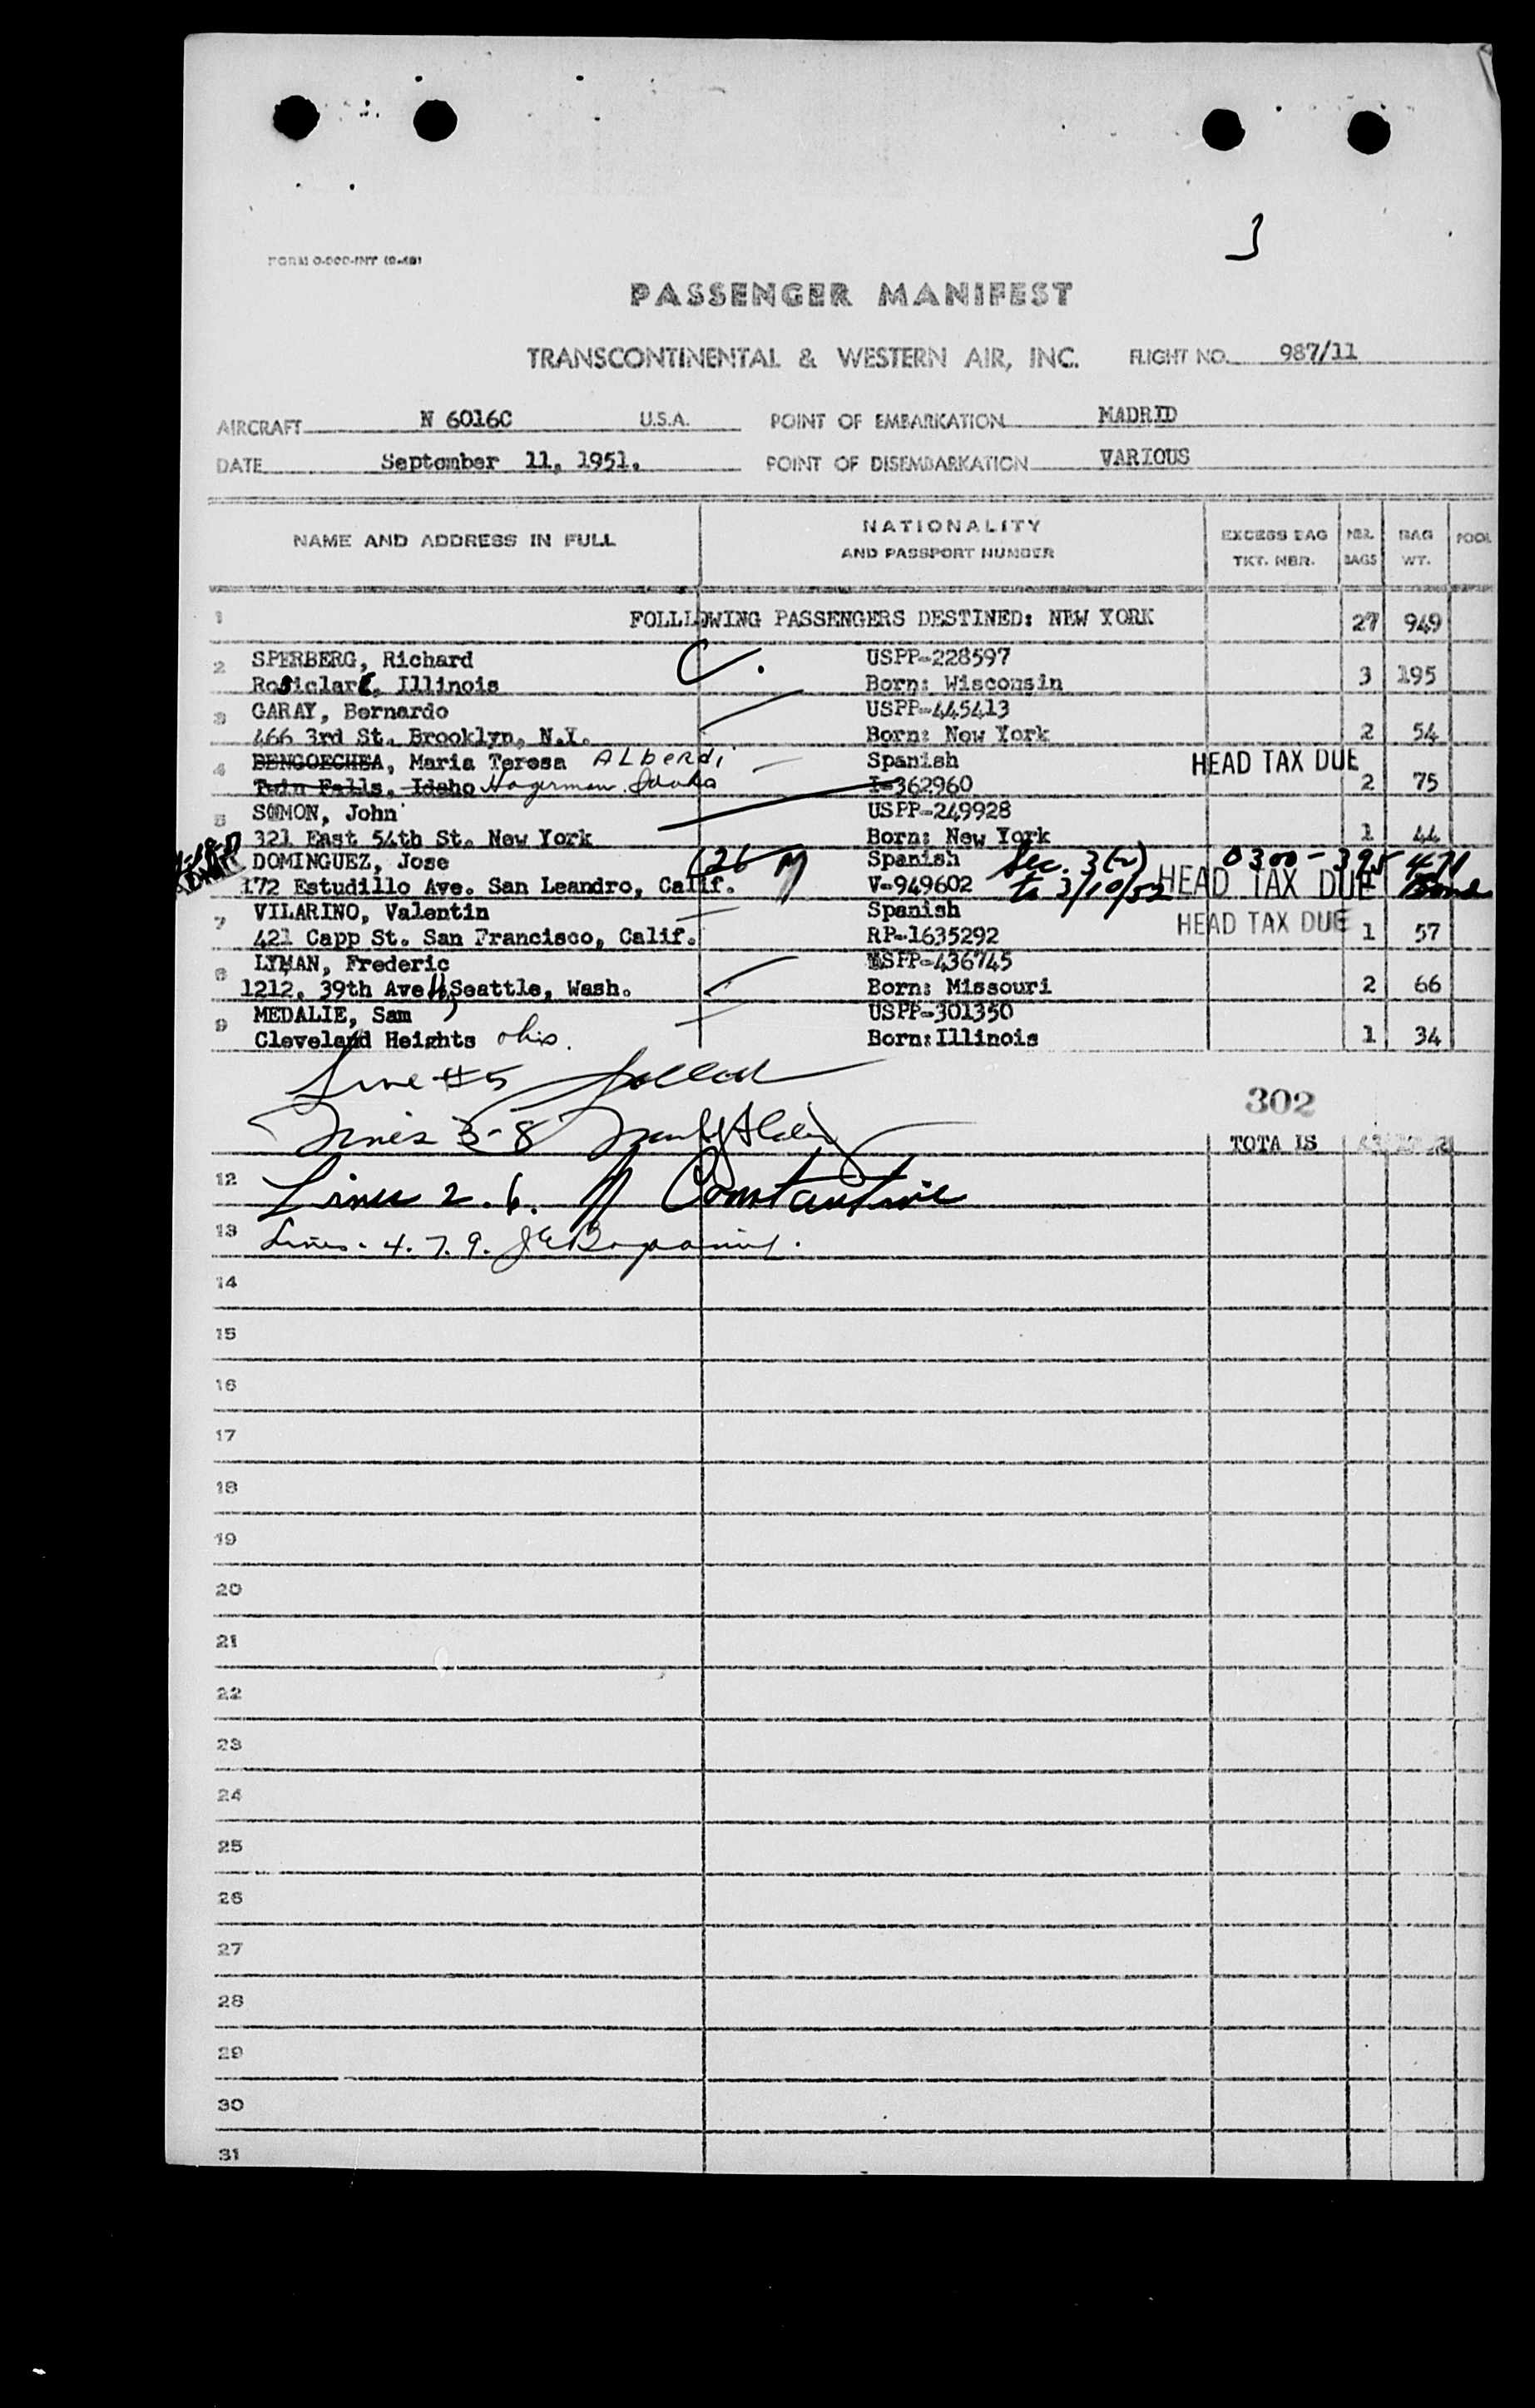 3
FORM O-000-INT (9-48)
PASSENGER MANIFEST
TRANSCONTINENTAL & WESTERN AIR, INC. FLIGHT NO. 987/11
AIRCRAFT N 6016C U.S.A. POINT OF EMBARKATION MADRID
DATE September 11, 1951. POINT OF DISEMBARKATION VARIOUS
NAME AND ADDRESS IN FULL NATIONALITY AND PASSPORT NUMBER EXCESS BAG TKT. NBR. NBR. BAGS BAG WT. POOL
1 FOLLLOWING PASSENGERS DESTINED: NEW YORK 27 949
2 SPERBERG, Richard USPP-228597
Rosiclare, Illinois Born: Wisconsin 3 195
3 GARAY, Bernardo USPP-445413
466 3rd St. Brooklyn, N.Y. Born: New York 2 54
4 BENGOECHEA, Maria Teresa ALberdi Spanish HEAD TAX DUE
Twin Falls, Idaho Hagerman Idaho I-362960 2 75
5 SOMON, John USPP-249928
321 East 54th St. New York Born: New York 1 44
DOMINGUEZ, Jose (26 M Spanish Sec. 3(2) 0300-395 471
172 Estudillo Ave. San Leandro, Calif. V-949602 to 3/10/52 HEAD TAX DUE 1
7 VILARINO, Valentin Spanish HEAD TAX DUE
421 Capp St. San Francisco, Calif. RP-1635292 1 57
8 LYMAN, Frederic USPP-436745
1212, 39th Ave N, Seattle, Wash. Born: Missouri 2 66
9 MEDALIE, Sam USPP-301350
Cleveland Heights Ohio. Born: Illinois 1 34
Line #5
302
Lines 3-8
TOTA LS
12 Lines 2.6. Constantine
13 Lines. 4. 7. 9.
14
15
16
17
18
19
20
21
22
23
24
25
26
27
28
29
30
31